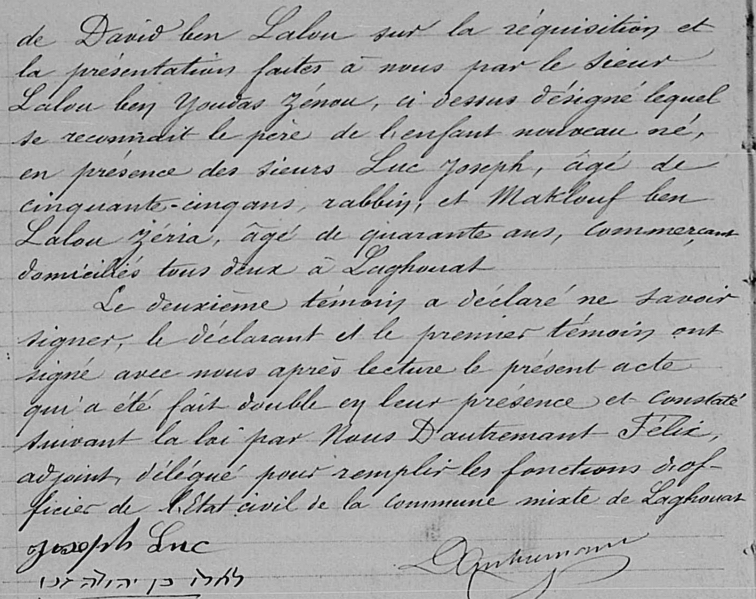 de David ben Lalou sur la réquisition et
la présentation faites à nous par le sieur
Lalou ben Youdas Zénou, ci dessus désigné lequel
se reconnait le père de l'enfant nouveau né,
en présence des sieurs Luc Joseph, âgé de
cinquante-cinq ans, rabbin, et Maklouf ben
Lalou Zéria, âgé de quarante ans, commerçant
domiciliés tous deux à Laghouat
Le deuxième témoin a déclaré ne savoir
signer, le déclarant et le premier témoin ont
signé avec nous après lecture le présent acte
qui a été fait double en leur présence et constaté
suivant la loi par Nous Dautremant Félix,
adjoint, délégué pour remplir les fonctions d'of-
ficier de l'Etat civil de la commune mixte de Laghouat
Joseph Luc
Dautremant